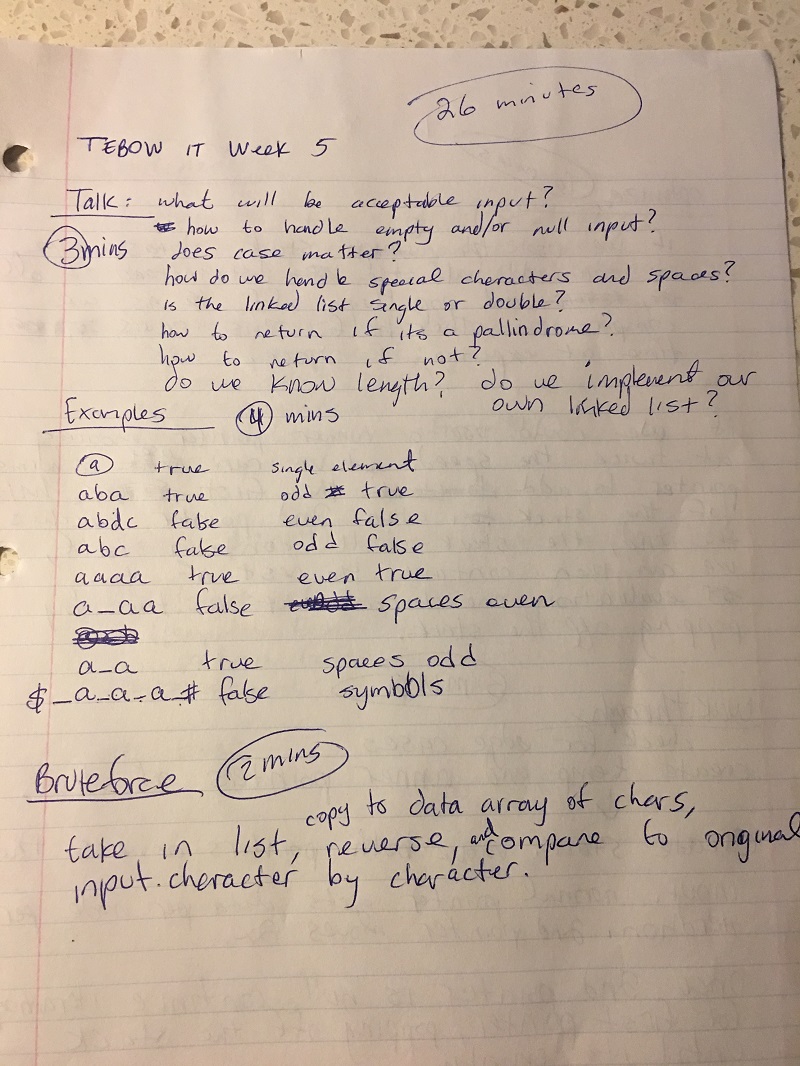 26 minutes
TEBOW IT Week 5
Talk: what will be acceptable input?
how to handle empty and/or null input?
3 mins does case matter?
how do we handle special characters and spaces?
is the linked list single or double?
how to return if its a pallindrome?
how to return if not?
do we know length? do we implement our
own linked list?
Examples 4 mins
a true single element
aba true odd true
abdc false even false
abc false odd false
aaaa true even true
a_aa false spaces even
a_a true spaces odd
$_a_a_a_# false symbols
Bruteforce 2 mins
copy to data array of chars,
take in list, reverse, and compare to original
input. cheracter by character.